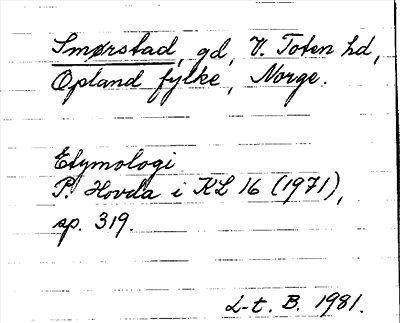 Smørstad, gd, V. Toten hd,
Opland fylke, Norge.
Etymologi
P. Hovda i KL 16 (1971),
sp. 319.
L-t. B. 1981.